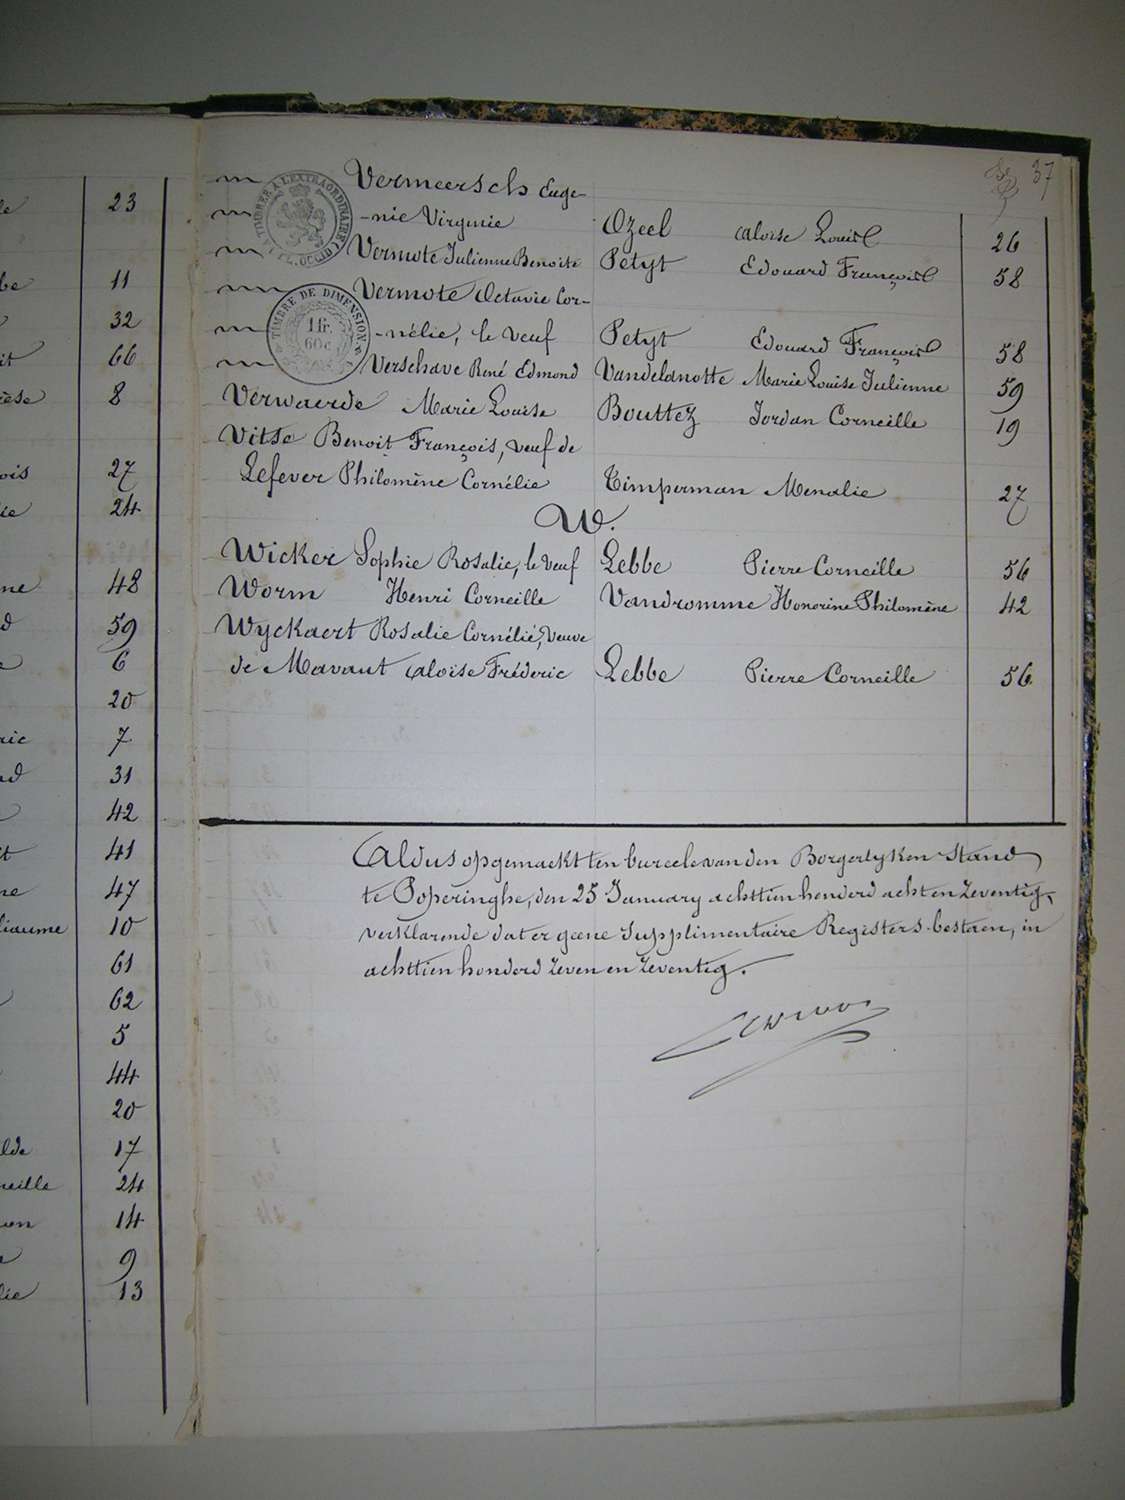 37
Vermeersch Euge-
-nie Virginie Ozeel Aloïse Louis 26
Vermote Julienne Benoite Petyt Edouard François 58
Vermote Octavie Cor-
-nélie, le veuf Petyt Edouard François 58
Verschave René Edmond Vandelanotte Marie Louise Julienne 59
Verwaerde Marie Louise Bouttez Jordan Corneille 19
Vitse Benoit François, veuf de
Lefever Philomène Cornélie Timperman Menalie 27
W.
Wicker Sophie Rosalie, le veuf Lebbe Pierre Corneille 56
Worm Henri Corneille Vandromme Honorine Philomène 42
Wyckaert Rosalie Cornélie, veuve
de Mavaut Aloïse Fréderic Lebbe Pierre Corneille 56
Aldus opgemaekt ten bureele van den Borgerlyken Stand
te Poperinghe, den 25 January achttien honderd acht en zeventig,
verklarende dat er geene Supplimentaire Registers bestaen, in
achttien honderd zeven en zeventig.
TIMBRE À L'EXTRAORDINAIRE
FL. OCCID.
TIMBRE DE DIMENSION
1 fr.
60 c.
23
be 11
32
it 66
èse 8
ois 27
ie 24
ne 48
d 59
e 6
20
ric 7
nd 31
42
t 41
ne 47
liaume 10
61
62
5
44
20
lde 17
neille 24
on 14
9
lie 13